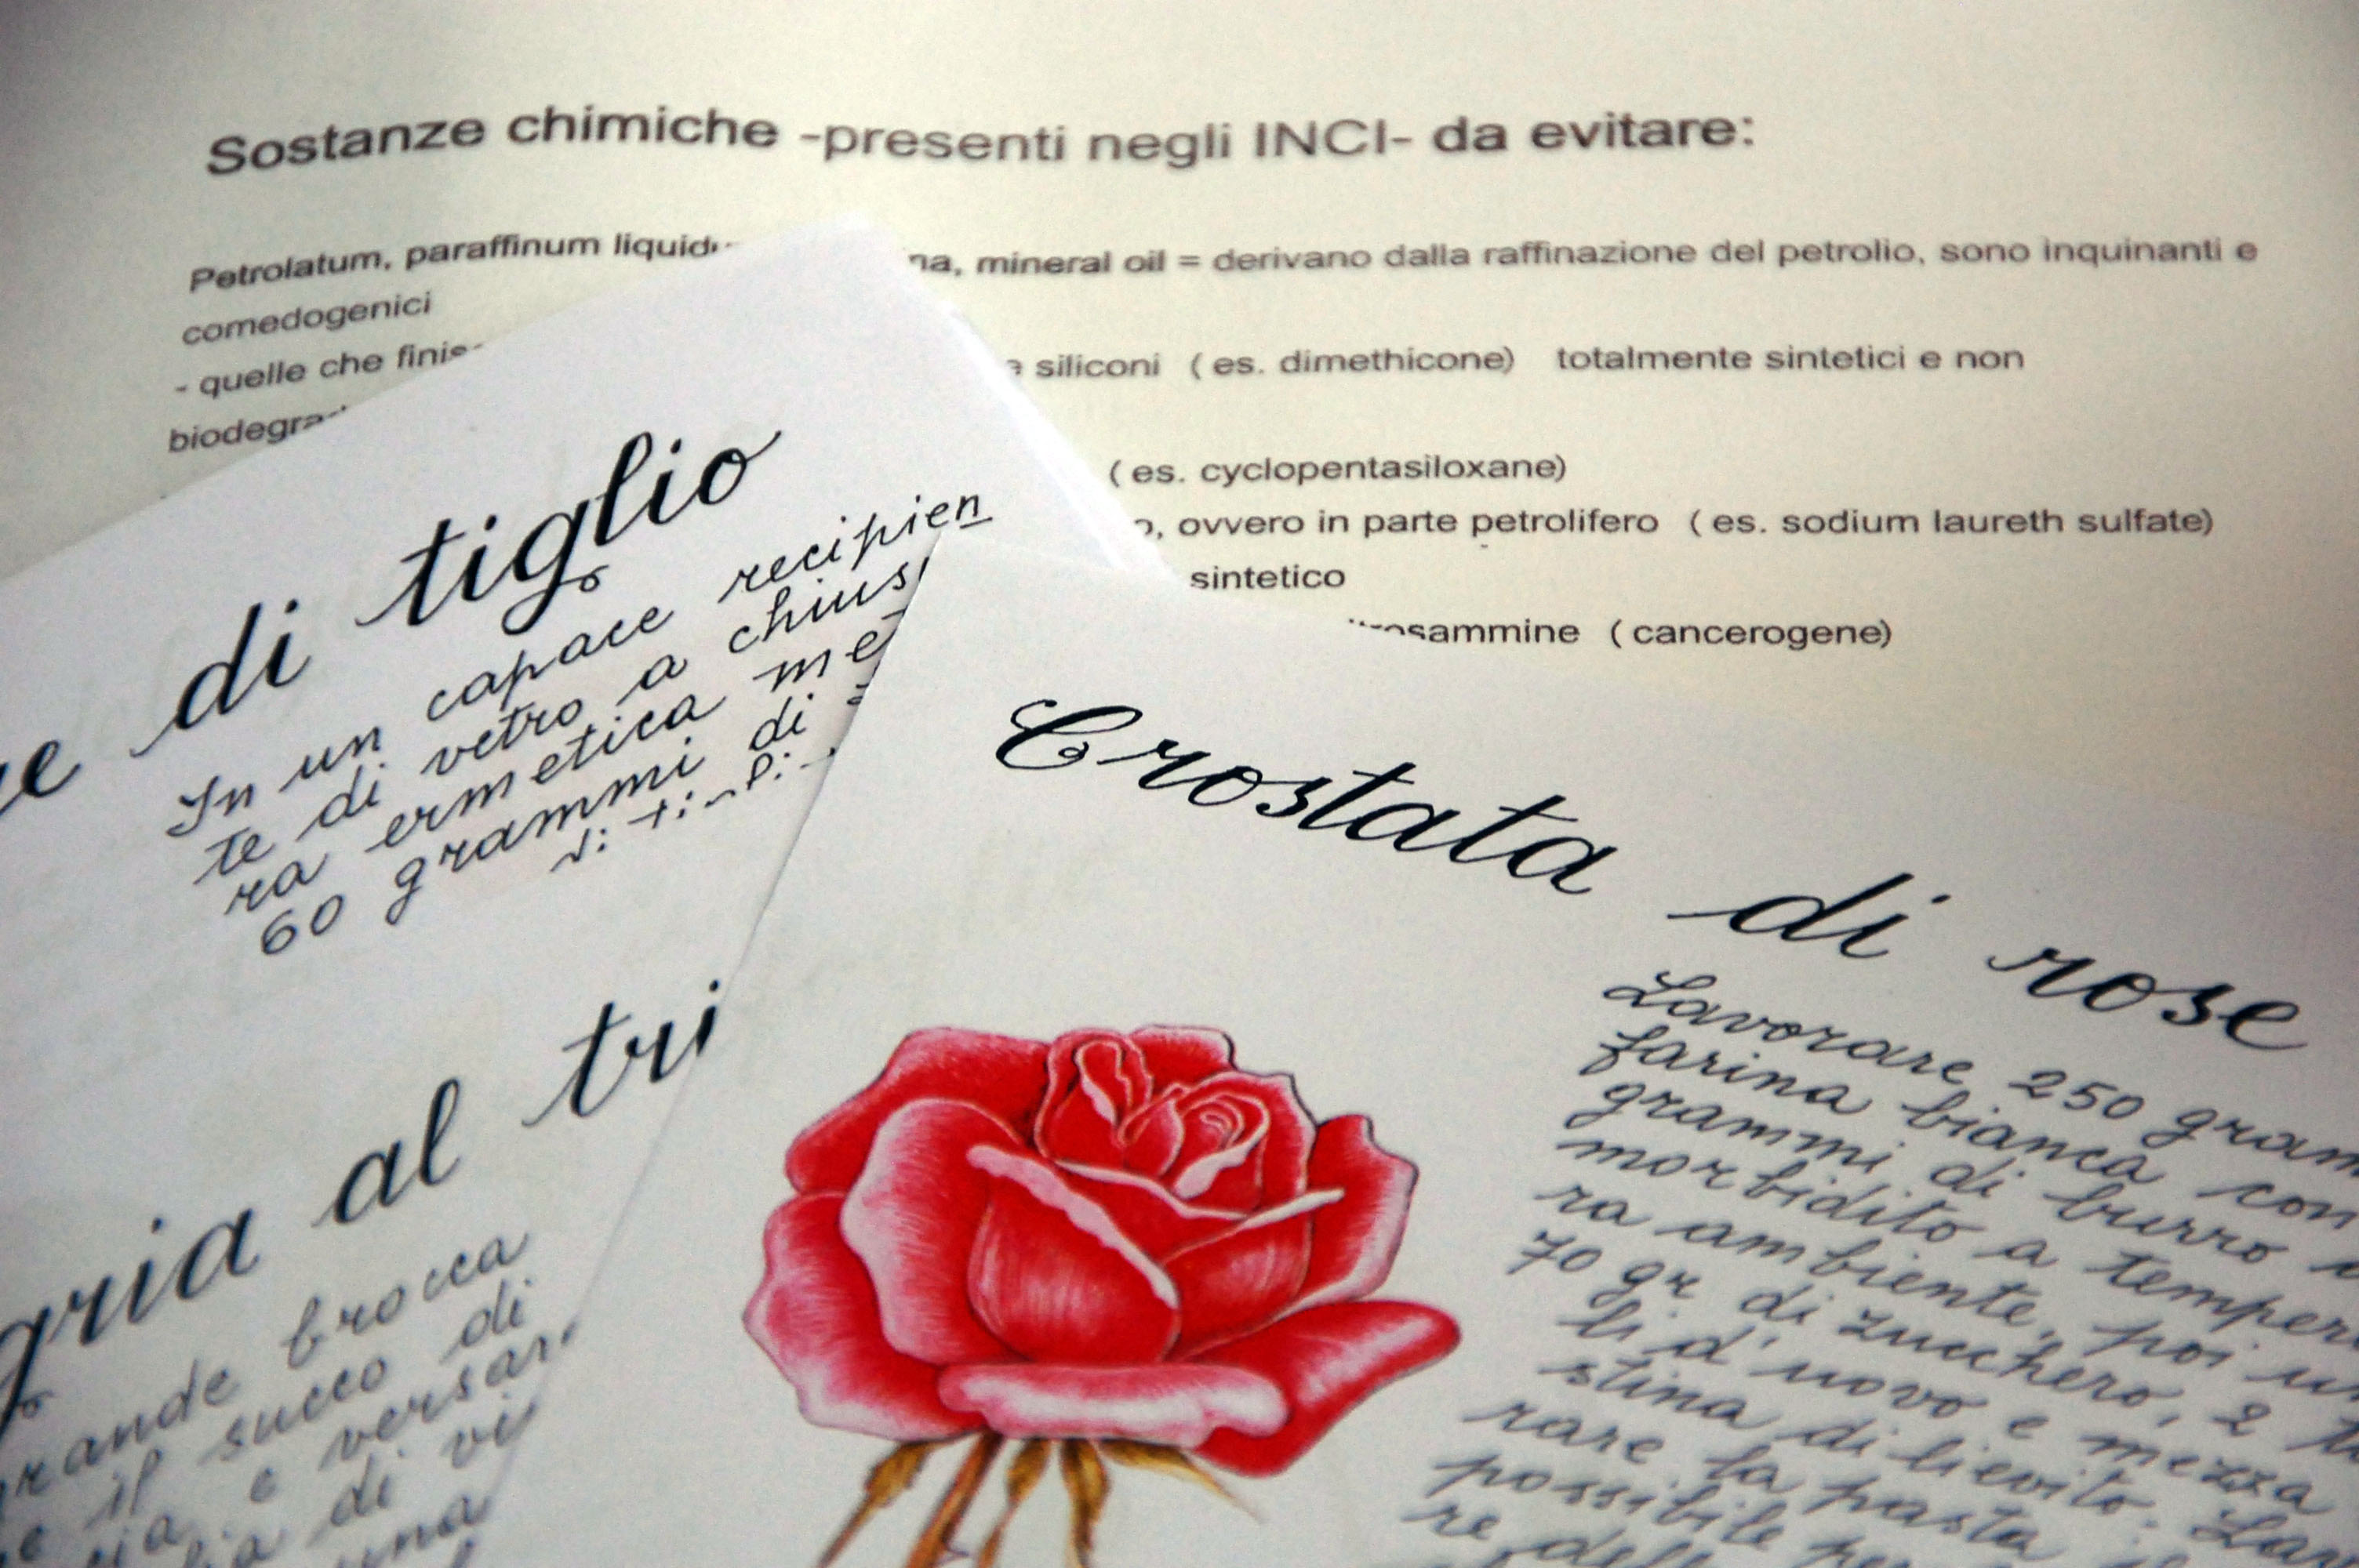 Sostanze chimiche -presenti negli INCI- da evitare:
Petrolatum, paraffinum mineral oil = derivano dalla raffinazione del petrolio, sono inquinanti e
comedogenici
- quelle che siliconi ( es. dimethicone) totalmente sintetici e non
( es. cyclopentasiloxane)
ovvero in parte petrolifero ( es. sodium laureth sulfate)
sintetico
( cancerogene)
di tiglio
In un capace recipien
te di vetro a chius
ra ermetica me
60 grammi di
al tri
grande brocca
il succo di
e versar
di vi
una
Crostata di rose
Lavorare 250 gram
farina bianca con
grammi di burro
morbidito a temper
ra ambiente, poi un
70 gr di zucchero, 2 tu
li d'uovo e mezza
stina di lievito. Lav
rare la pasta
possibile
re